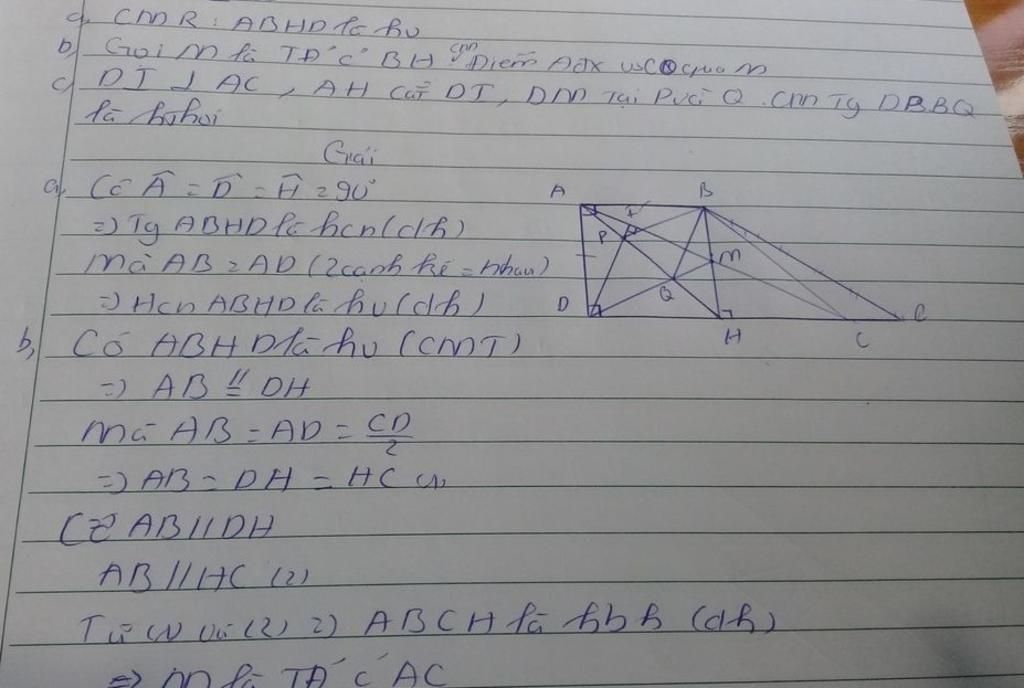 a, CMR: ABHD là hv
b, Gọi M là TĐ' C' BH cm Điểm A đx vs C qua M
c, DI ⊥ AC, AH cắt DI, DM tại P và Q. Cm Tg DPBQ
là h.thoi
Giải
a, Có Â = D̂ = Ĥ = 90°
=) Tg ABHD là hcn (dh)
Mà AB = AD (2 cạnh kề = nhau)
=) Hcn ABHD là hv (dh)
b, Có ABHD là hv (CMT)
=) AB //= DH
Mà AB = AD = CD/2
=) AB = DH = HC (1)
Có AB // DH
AB // HC (2)
Từ (1) và (2) =) ABCH là hbh (dh)
=) M là TĐ' C' AC
A
B
I
P
M
Q
D
H
C
C